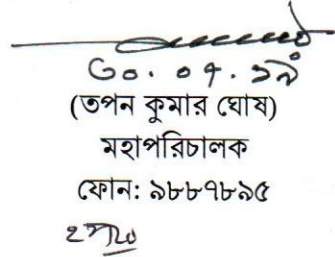 ৩০.০৭.১৯
(তপন কুমার ঘোষ)
মহাপরিচালক
ফোন: ৯৮৮৭৮৯৫